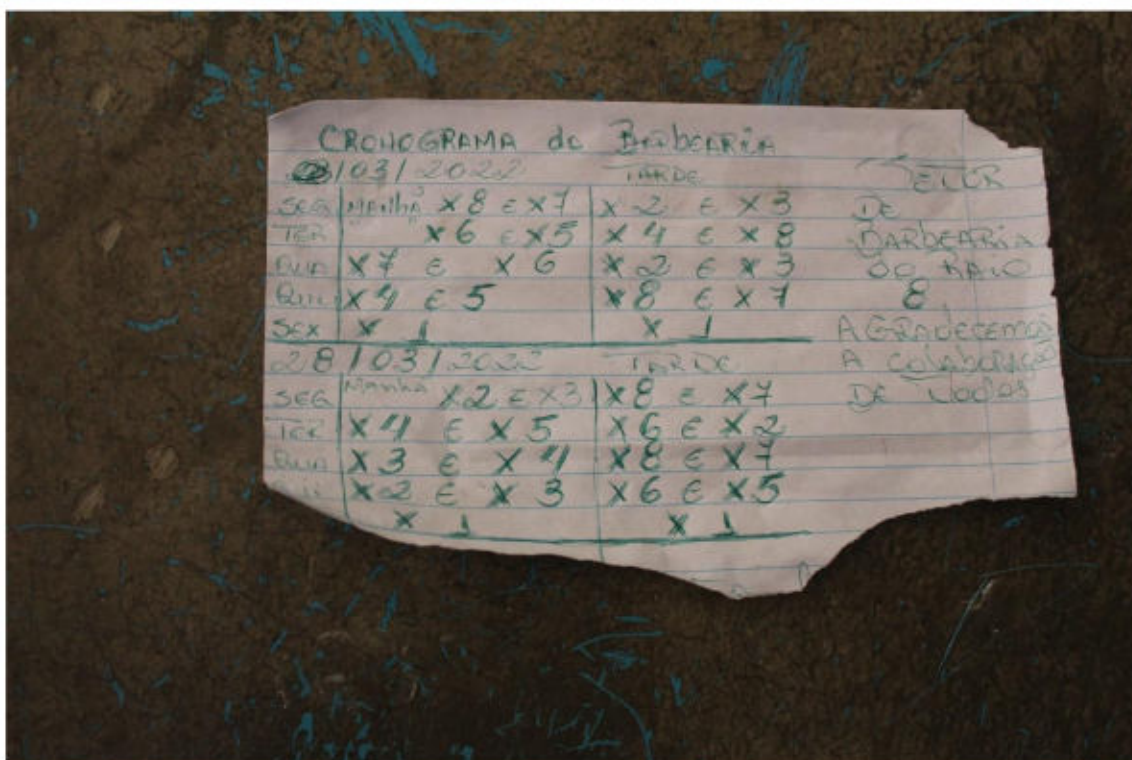 CRONOGRAMA da BARBEARIA
/03/2022 TARDE
SEG MANHÃ X8 E X7 X2 E X3
TER X6 E X5 X4 E X8
QUA X7 E X6 X2 E X3
QUI X4 E 5 X8 E X7
SEX X 1 X 1
28/03/2022 TARDE
SEG MANHÃ X2 E X3 X8 E X7
TER X4 E X5 X6 E X2
QUA X3 E X4 X8 E X7
X2 E X3 X6 E X5
X 1 X 1
SETOR
DE
BARBEARIA
DO RAIO
8
AGRADECEMOS
A COLABORAÇÃO
DE todos